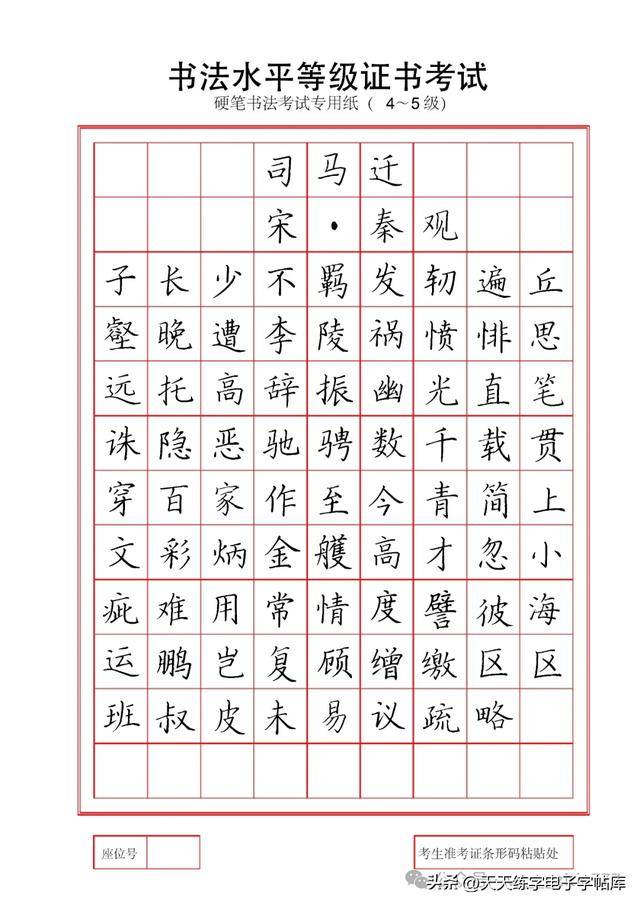 书法水平等级证书考试
硬笔书法考试专用纸 ( 4～5级)
司马迁
宋·秦观
子长少不羁发轫遍丘
壑晚遭李陵祸愤悱思
远托高辞振幽光直笔
诛隐恶驰骋数千载贯
穿百家作至今青简上
文彩炳金艧高才忽小
疵难用常情度譬彼海
运鹏岂复顾缯缴区区
班叔皮未易议疏略
座位号
考生准考证条形码粘贴处
头条@天天练字电子字帖库